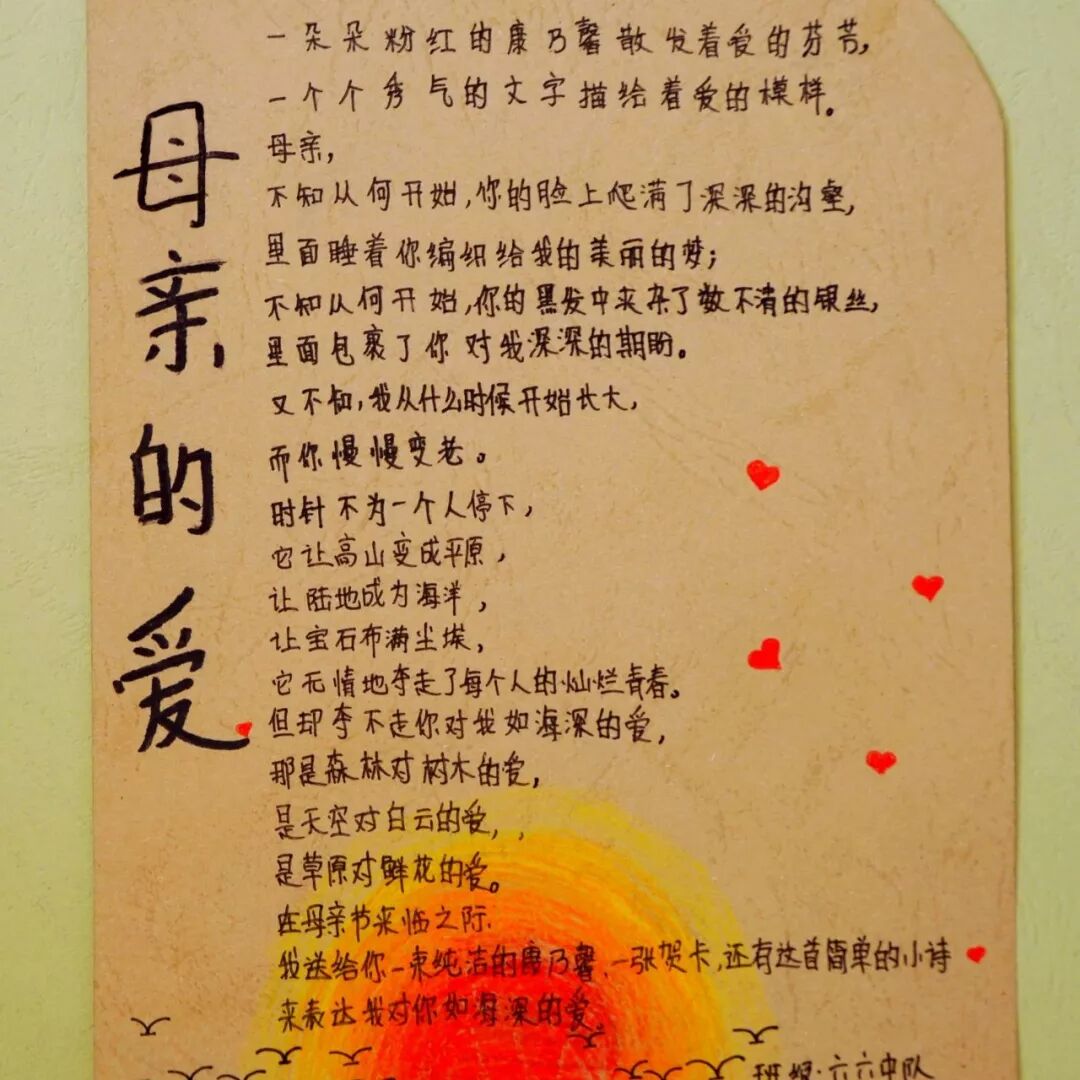 母亲的爱
一朵朵粉红的康乃馨散发着爱的芬芳,
一个个秀气的文字描绘着爱的模样。
母亲,
不知从何开始,你的脸上爬满了深深的沟壑,
里面睡着你编织给我的美丽的梦;
不知从何开始,你的黑发中夹杂了数不清的银丝,
里面包裹了你对我深深的期盼。
又不知,我从什么时候开始长大,
而你慢慢变老。
时针不为一个人停下,
它让高山变成平原,
让陆地成为海洋,
让宝石布满尘埃,
它无情地夺走了每个人的灿烂青春。
但却夺不走你对我如海深的爱,
那是森林对树木的爱,
是天空对白云的爱,
是草原对鲜花的爱。
在母亲节来临之际,
我送给你一束纯洁的康乃馨、一张贺卡,还有这首简单的小诗
来表达我对你如海深的爱。
班级:六六中队